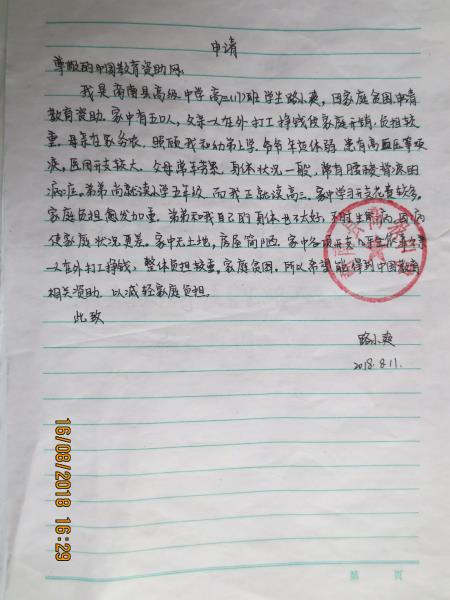 申请
尊敬的中国教育资助网:
我是商南县高级中学高三(17)班学生路小爽,因家庭贫困,申请
教育资助。家中有五口人,父亲一人在外打工挣钱供家庭开销,负担较
重,母亲在家务农,照顾我和幼弟上学,爷爷年迈体弱,患有高血压等顽
疾,医用开支较大。父母常年劳累,身体状况一般,常有腰酸背疼的
病症。弟弟尚就读小学五年级,而我正就读高三。家中学习开支花费较多。
家庭负担愈发加重,弟弟和我自己的身体也不太好,不时生病,因病
使家庭状况更差。家中无土地,房屋简陋,家中各项开支几乎全靠父亲
一人在外打工挣钱,整体负担较重。家庭贫困。所以希望能得到中国教育
相关资助,以减轻家庭负担。
此致
路小爽
2018.8.11.
16/08/2018 16:29
第 页